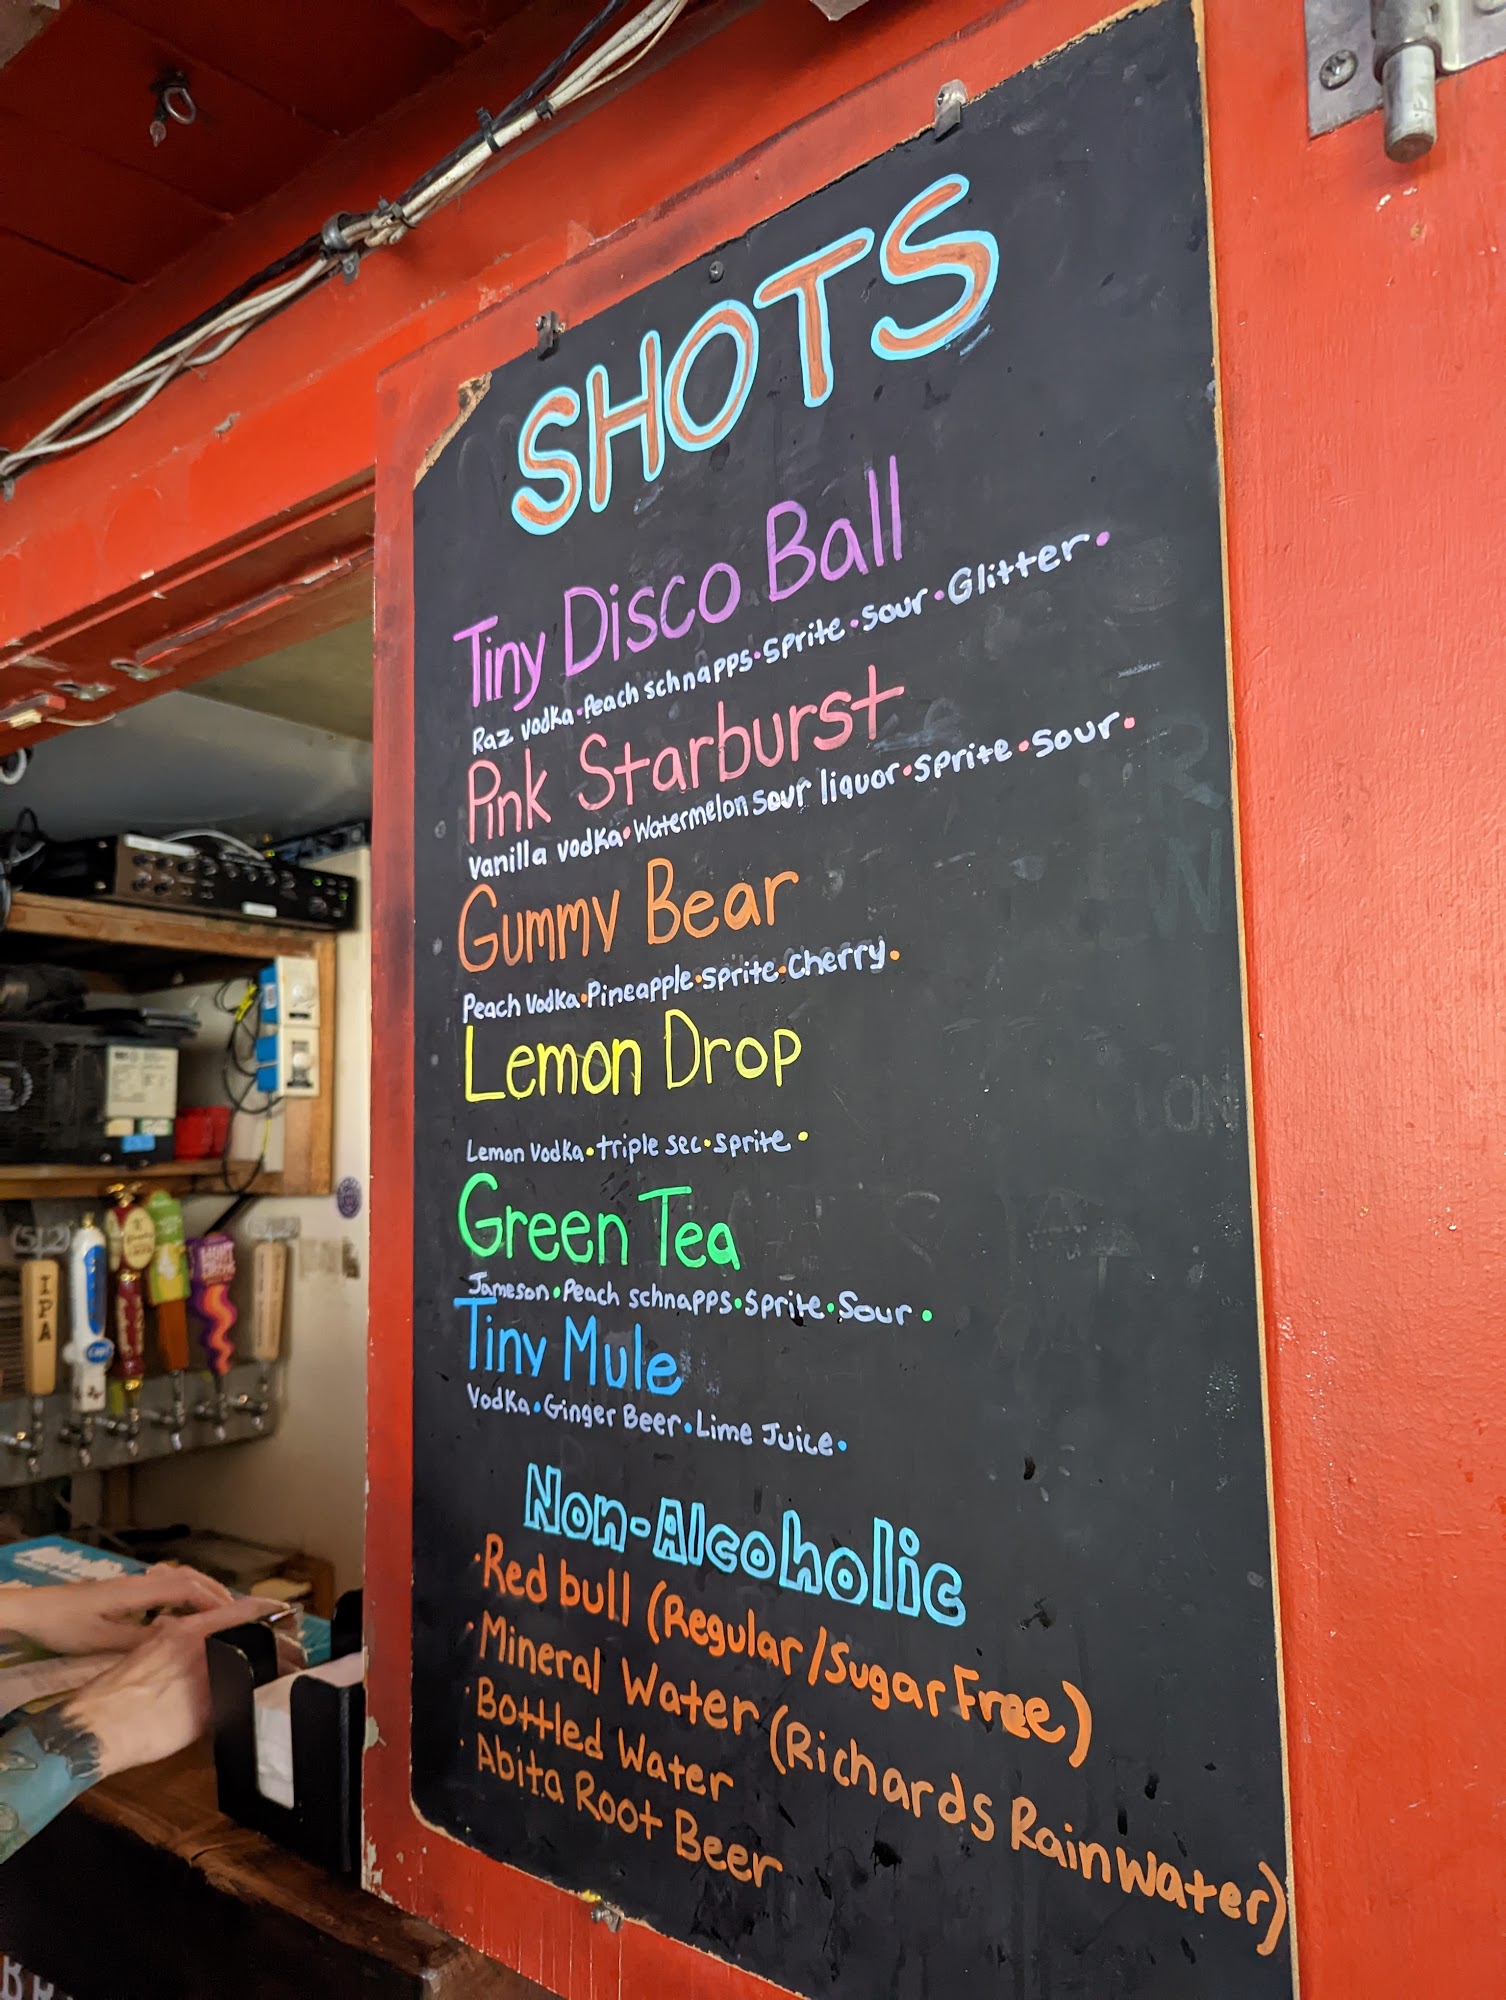 SHOTS
Tiny Disco Ball
Raz vodka•Peach schnapps•Sprite•Sour•Glitter•
Pink Starburst
Vanilla vodka•Watermelon sour liquor•Sprite•Sour•
Gummy Bear
Peach Vodka•Pineapple•Sprite•Cherry•
Lemon Drop
Lemon Vodka•triple sec•sprite•
Green Tea
Jameson•Peach schnapps•Sprite•Sour•
Tiny Mule
Vodka•Ginger Beer•Lime Juice•
Non-Alcoholic
•Red bull (Regular/Sugar Free)
•Mineral Water (Richards Rainwater)
•Bottled Water
•Abita Root Beer
(512)
IPA